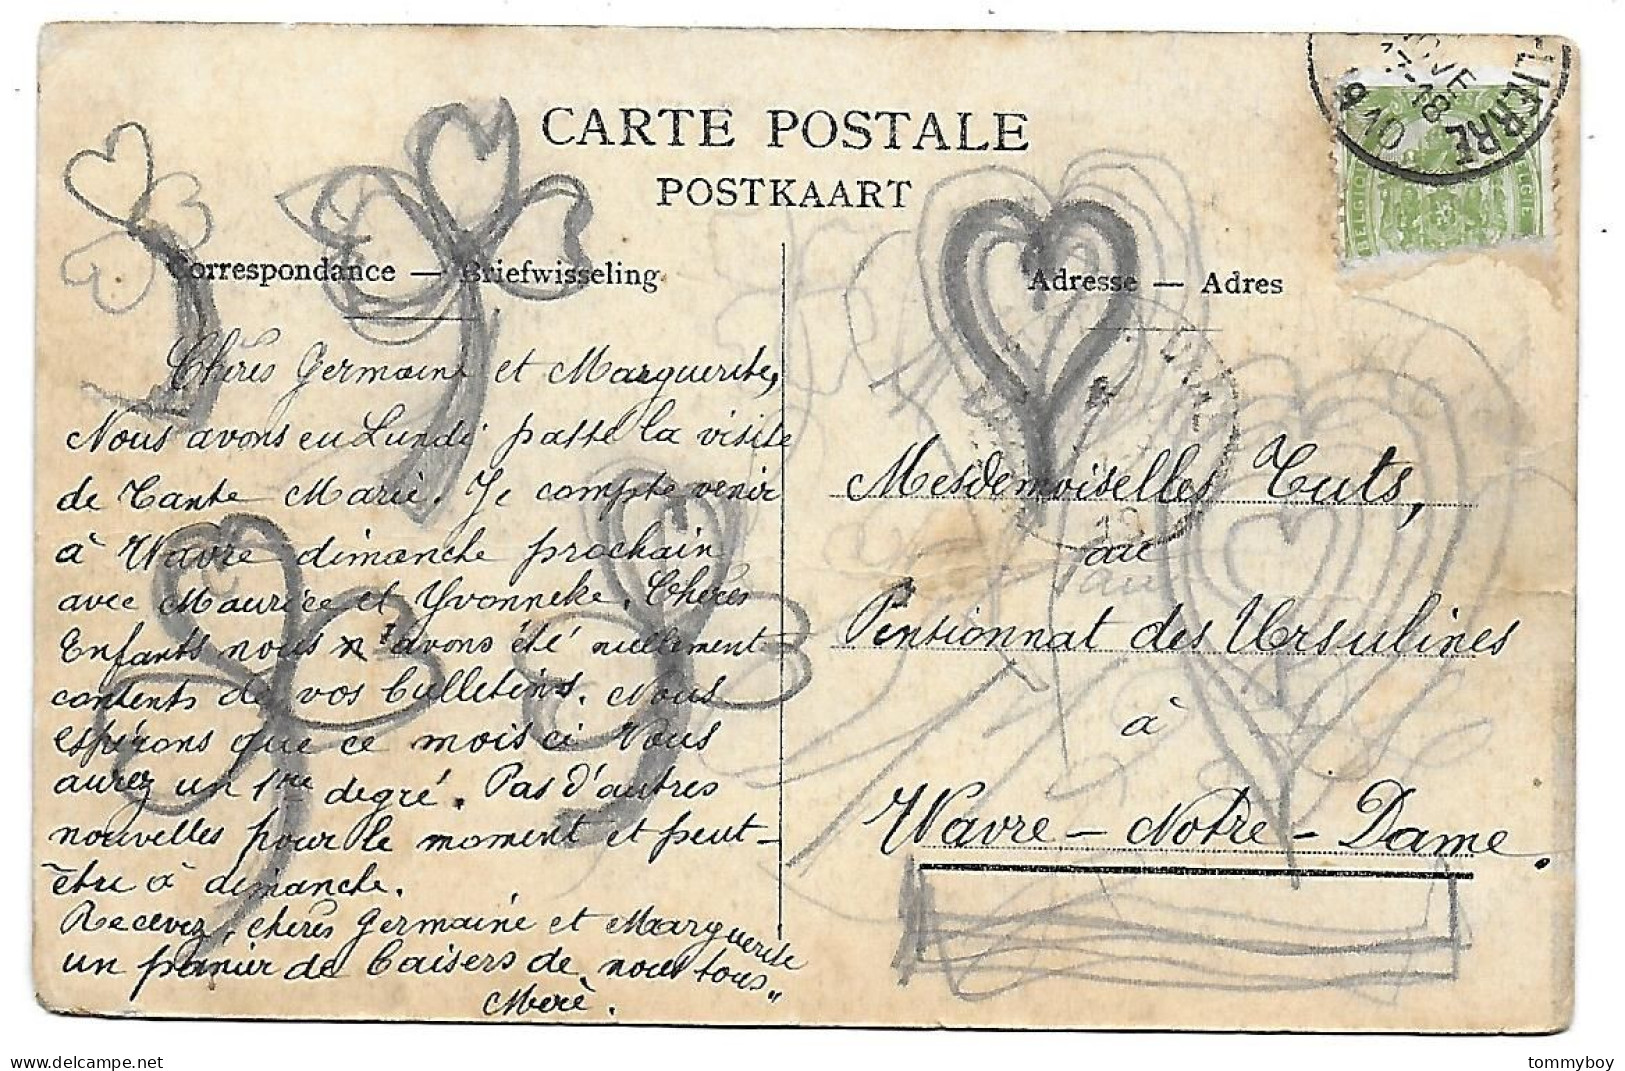 CARTE POSTALE
POSTKAART
Correspondance — Briefwisseling
Chères Germaine et Marguerite,
Nous avons eu Lundi passé la visite
de Tante Marie. Je compte venir
à Wavre dimanche prochain
avec Maurice et Yvonneke. Chères
Enfants nous n'avons été nullement
contents de vos bulletins. Nous
espérons que ce mois ci Vous
aurez un 1re degré. Pas d'autres
nouvelles pour le moment et peut-
être à dimanche.
Recevez, chères Germaine et Marguerite
un panier de baisers de nous tous"
Mère.
Adresse — Adres
Mesdemoiselles Tuts,
au
Pensionnat des Ursulines
à
Wavre-Notre-Dame.
LIERRE
18
10
BELGIQUE
BELGIE
tommyboy